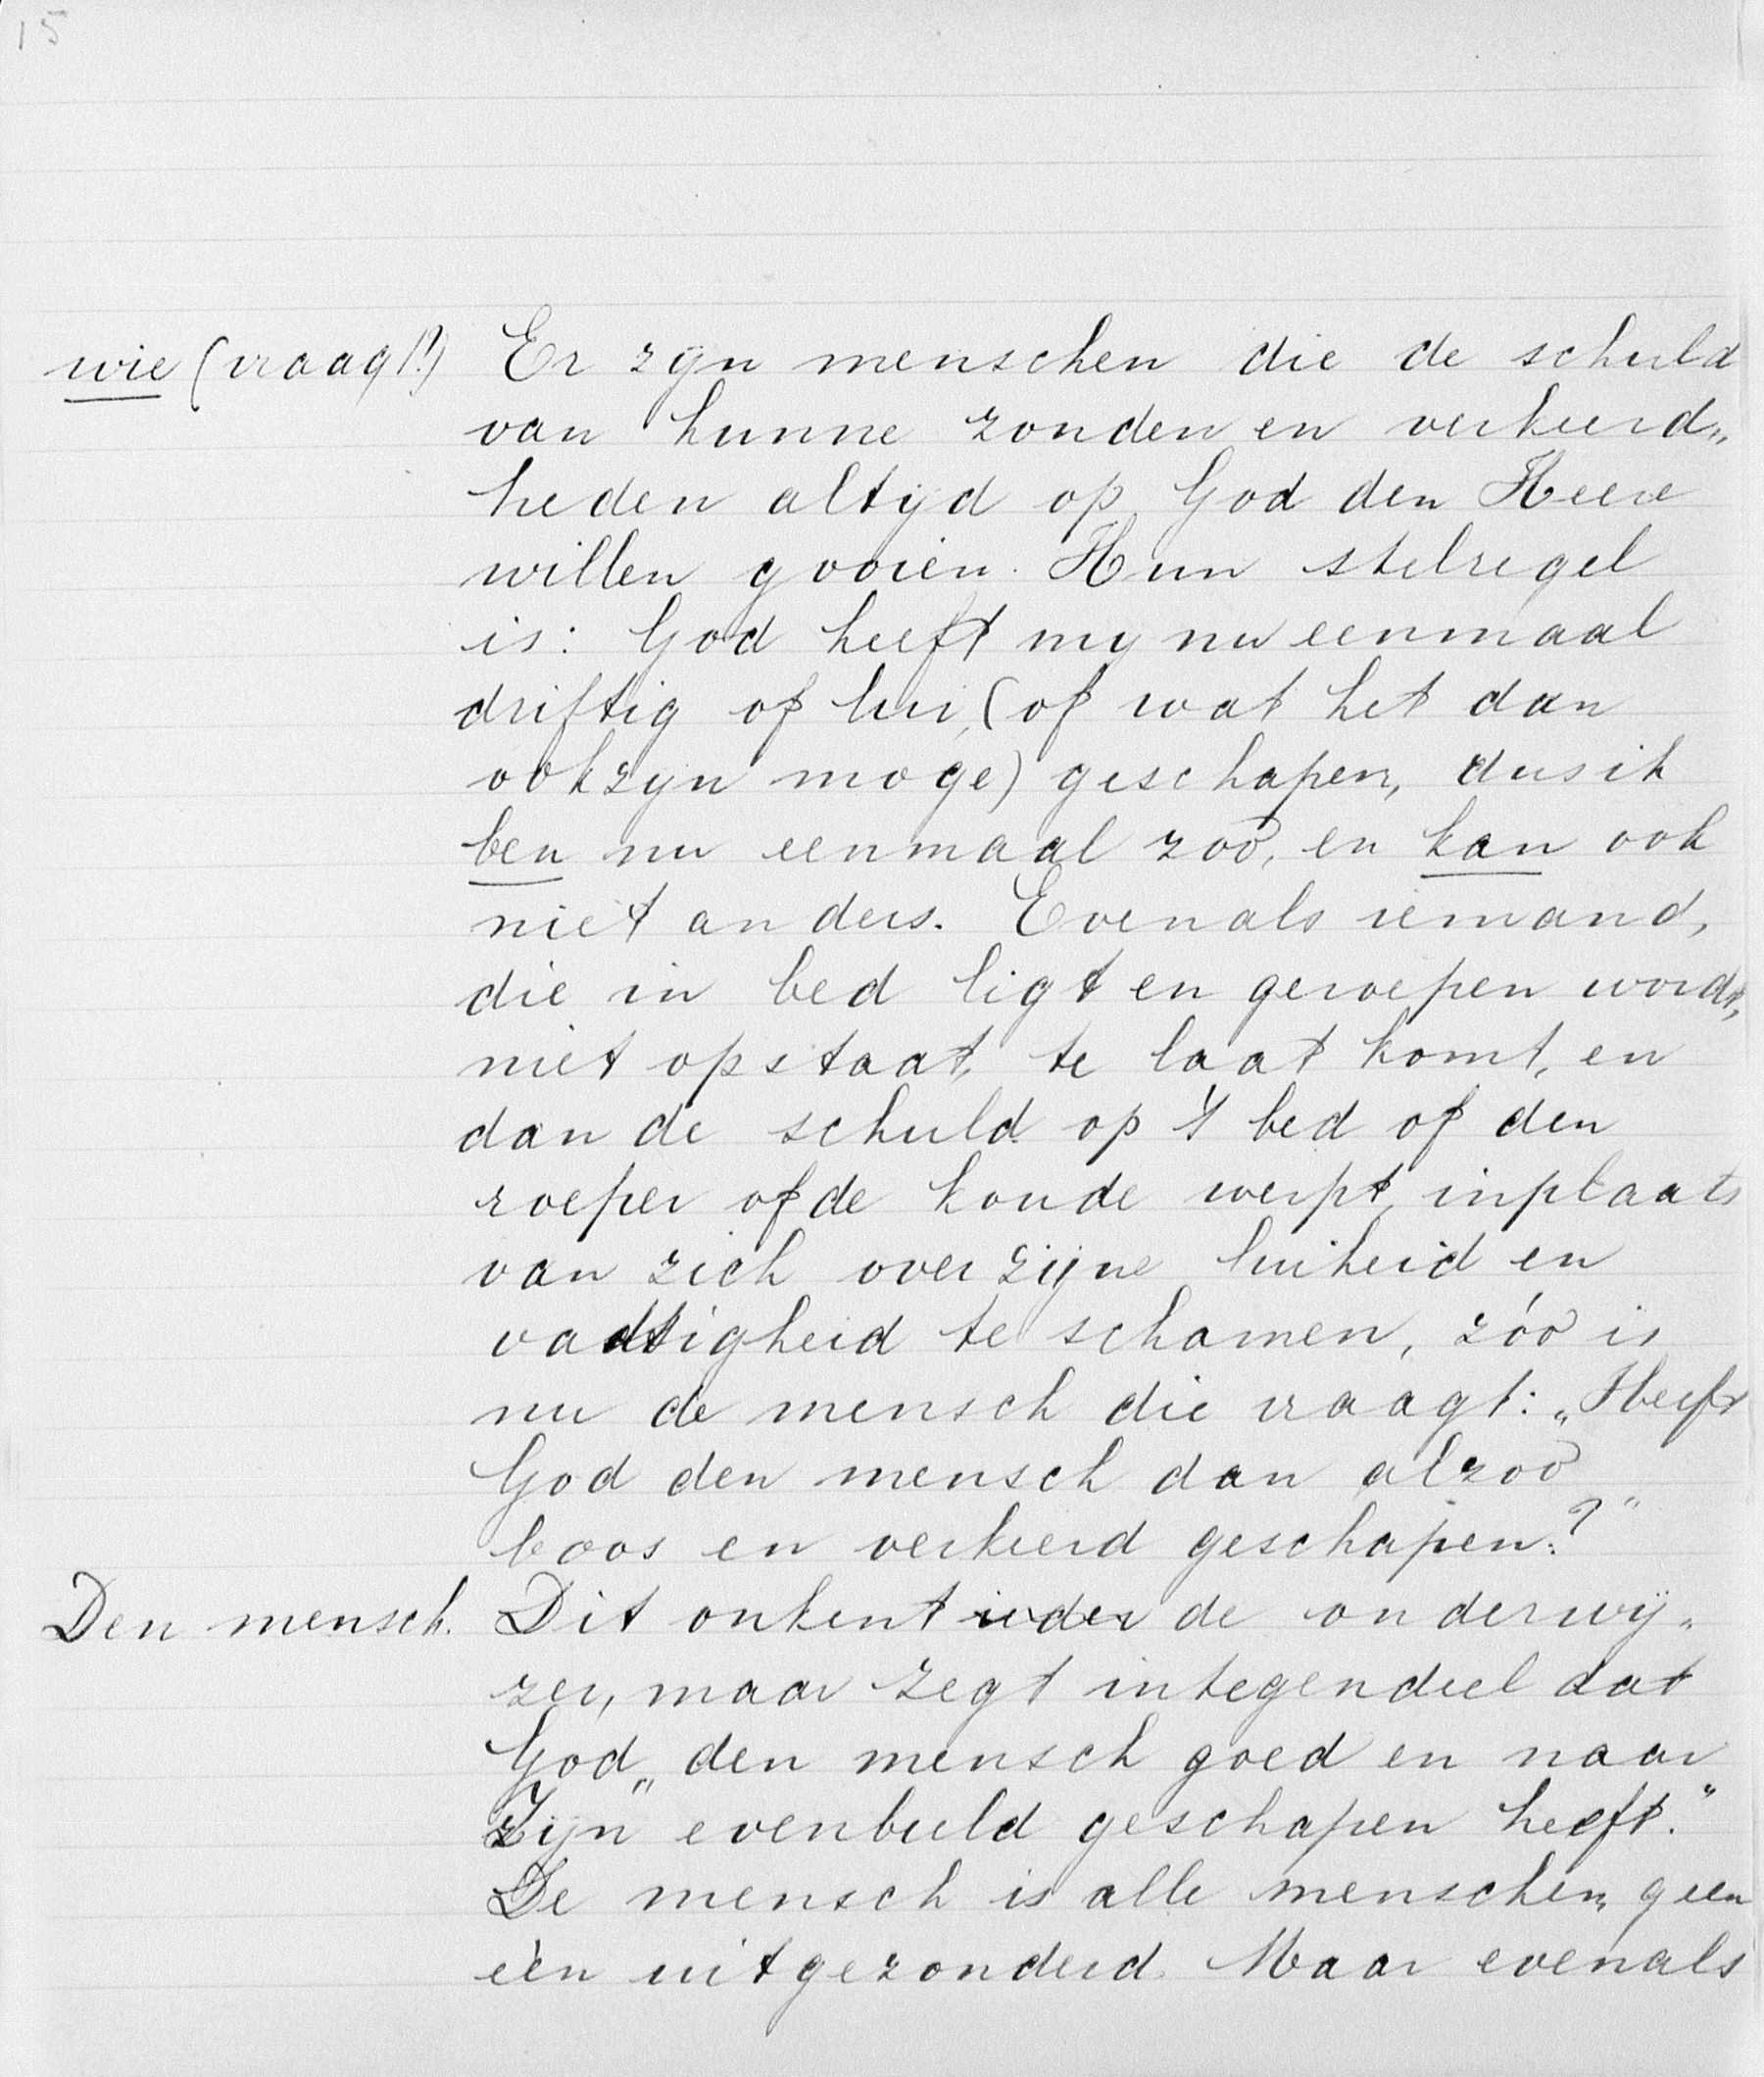 15
wie (vraagt?) Er zijn menschen die de schuld
van hunne zonden en verkeerd„
heden altijd op God den Heere
willen gooien. Hun stelregel
is: God heeft my nu eenmaal
driftig of lui, (of wat het dan
ook zyn moge) geschapen, dus ik
ben nu eenmaal zoo, en kan ook
niet anders. Evenals iemand,
die in bed ligt en geroepen wordt,
niet opstaat, te laat komt, en
dan de schuld op 't bed of den
roeper of de koude werpt, inplaats
van zich over zijne luiheid en
vadsigheid te schamen, zóo is
nu de mensch die vraagt: „Heeft
God den mensch dan alzoo
boos en verkeerd geschapen?"
Den mensch. Dit onkent ieder de onderwij„
zer, maar zegt integendeel dat
God „den mensch goed en naar
Zijn" evenbeeld geschapen heeft."
De mensch is alle menschen, geen
eèn uitgezonderd. Maar evenals